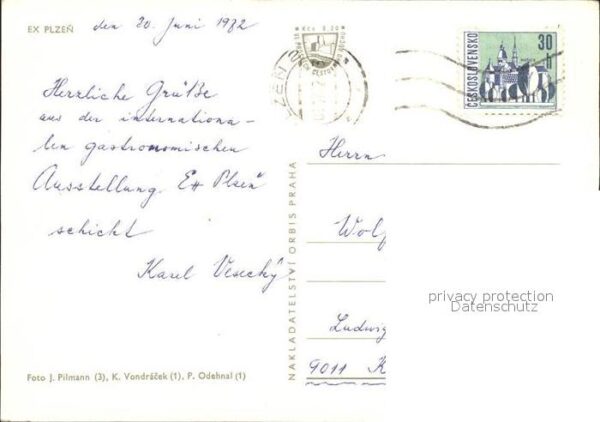 EX PLZEŇ
den 20. Juni 1972
Herzliche Grüße
aus der internationa-
len gastronomischen
Ausstellung "Ex Plzeň"
schickt
Karel Vesecký
Foto J. Pilmann (3), K. Vondráček (1), P. Odehnal (1)
NAKLADATELSTVÍ ORBIS PRAHA
Kčs 0,20
ČESKOSLOVENSKO
30 h
Herrn
Wolf
Ludwig
9011 K
privacy protection
Datenschutz